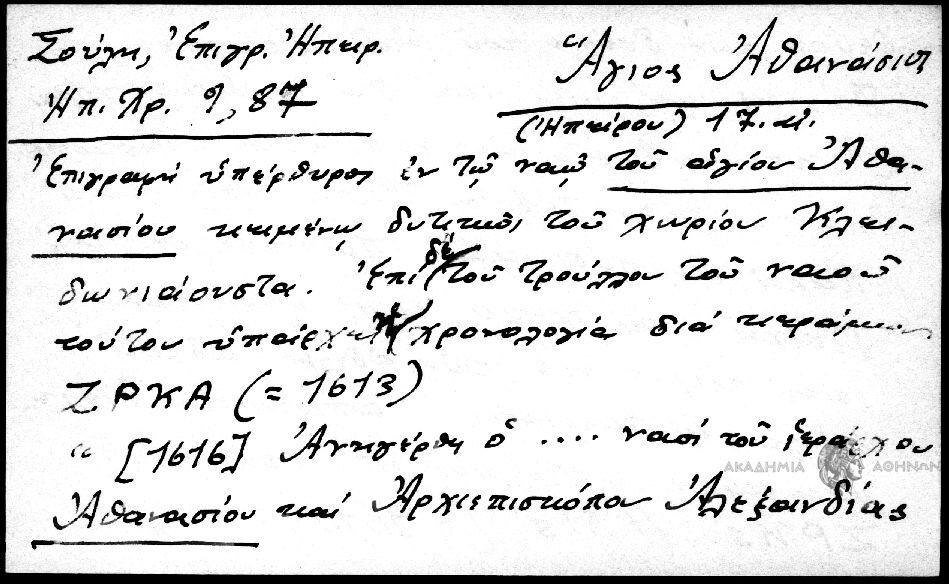 Σούλη, Ἐπιγρ. Ἠπειρ.
Ἠπ. Χρ. 9, 87
Ἅγιος Ἀθανάσιος
(Ἠπείρου) 17. αἰ.
Ἐπιγραφή ὑπέρθυρος ἐν τῷ ναῷ τοῦ ἁγίου Ἀθα-
νασίου κειμένῳ δυτικῶς τοῦ χωρίου Κλει-
δωνιάουστα. Ἐπί δέ τοῦ τρούλλου τοῦ ναοῦ
τούτου ὑπάρχει ἡ χρονολογία διά κεράμων
ΖΡΚΑ (= 1613)
“ [1616] Ἀνηγέρθη ὁ .... ναός τοῦ ἱεράρχου
Ἀθανασίου καί Ἀρχιεπισκόπου Ἀλεξανδίας
ΑΚΑΔΗΜΙΑ ΑΘΗΝΩΝ